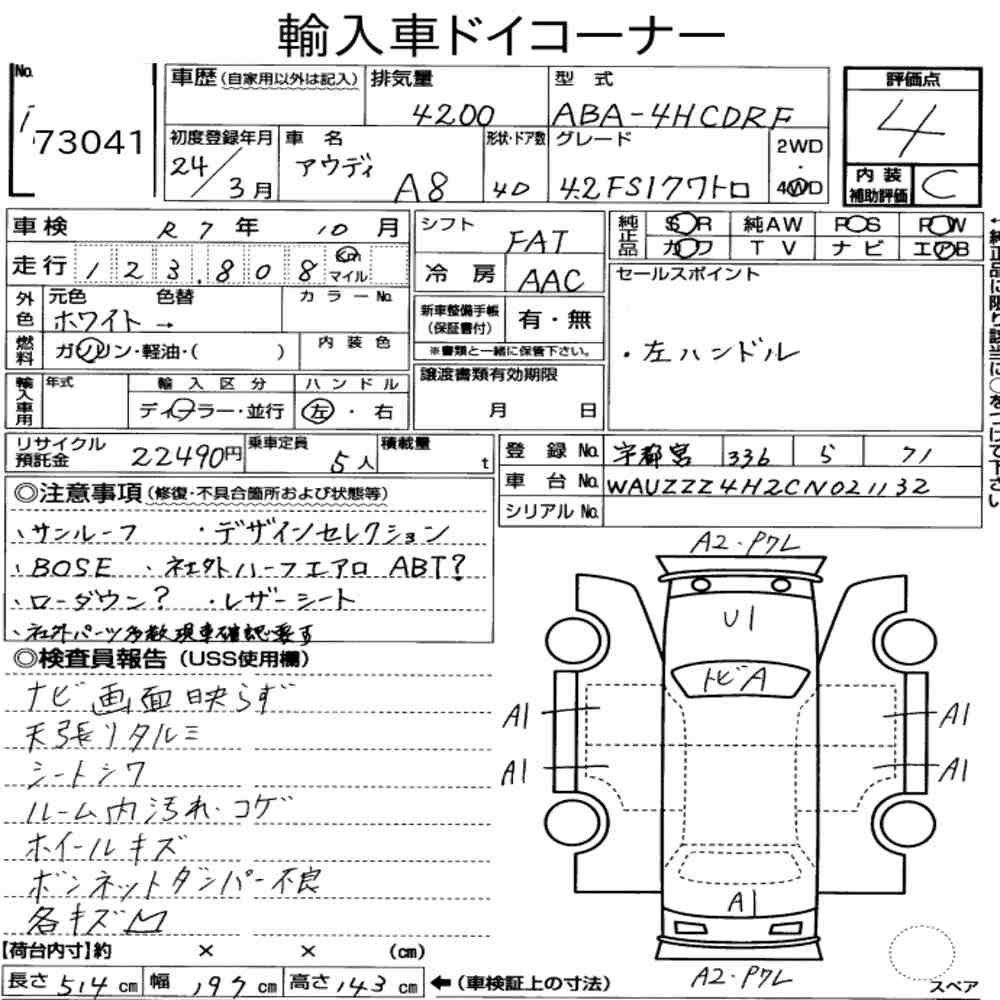 輸入車ドイコーナー
No. i 73041
車歴 (自家用以外は記入) 排気量 4200 型式 ABA-4HCDRF
評価点 4
初度登録年月 24/3月 車名 アウディ A8 形状・ドア数 4D グレード 4.2FSIクワトロ 2WD・4WD
内装補助評価 C
車検 R7年 10月
シフト FAT
純正品 SR 純AW PS PW
カワ TV ナビ エアB
走行 123,808 Km マイル
冷房 AAC
セールスポイント
・左ハンドル
外色 元色 ホワイト → 色替 カラーNo.
新車整備手帳(保証書付) 有・無
※書類と一緒に保管下さい。
燃料 ガソリン・軽油・( ) 内装色
譲渡書類有効期限 月 日
輸入車用 年式 輸入区分 ディーラー・並行 ハンドル 左・右
リサイクル預託金 22490円 乗車定員 5人 積載量 t
登録No. 宇都宮 336 ら 71
車台No. WAUZZZ4H2CN021132
シリアルNo.
◎注意事項 (修復・不具合箇所および状態等)
、サンルーフ ・デザインセレクション
、BOSE 、社外ハーフエアロ ABT?
、ローダウン? ・レザーシート
、社外パーツ多数現車確認要す
◎検査員報告 (USS使用欄)
ナビ画面映らず
天張リタルミ
シートシワ
ルーム内汚れ・コゲ
ホイールキズ
ボンネットダンパー不良
各キズ凹
A2・P7L
U1
トビA
A1
A1
A1
A1
A1
A2・P7L
スペア
【荷台内寸】約 × × (cm)
長さ 514 cm 幅 197 cm 高さ 143 cm ←(車検証上の寸法)
←純正品に限り該当に○をつけて下さい